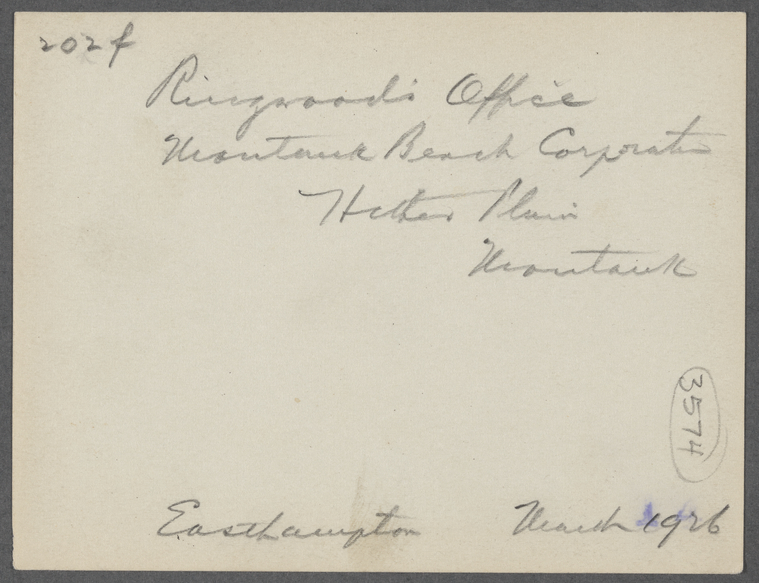 202f
Ringwood's Office
Montauk Beach Corporatn
Hither Plain
Montauk
3574
Easthampton March 1926